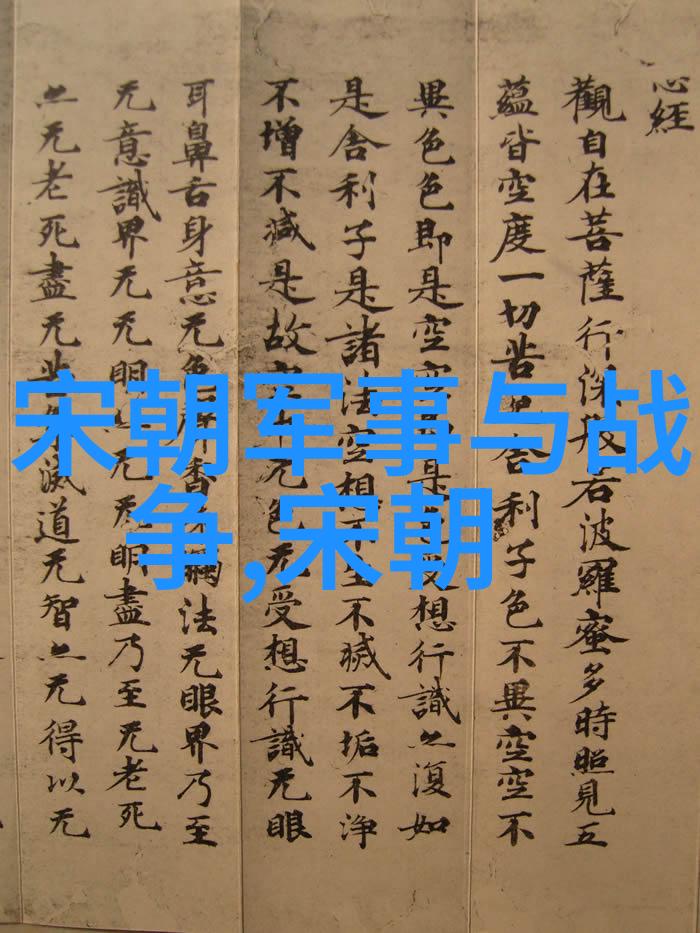 宋朝军事与战
争,宋朝
心經
觀自在菩薩行深般若波羅蜜多時照見五
蘊皆空度一切苦舍利子色不異空空不
異色色即是空空是受想行識亦復如
是舍利子是諸法空想不生不滅不垢不淨
不增不減是故空中无色无受想行識无眼
耳鼻舌身意无色聲香觸法无眼界乃至
无意識界无无明亦无无明盡乃至无老死
亦无老死盡无苦滅道无智亦无得以无